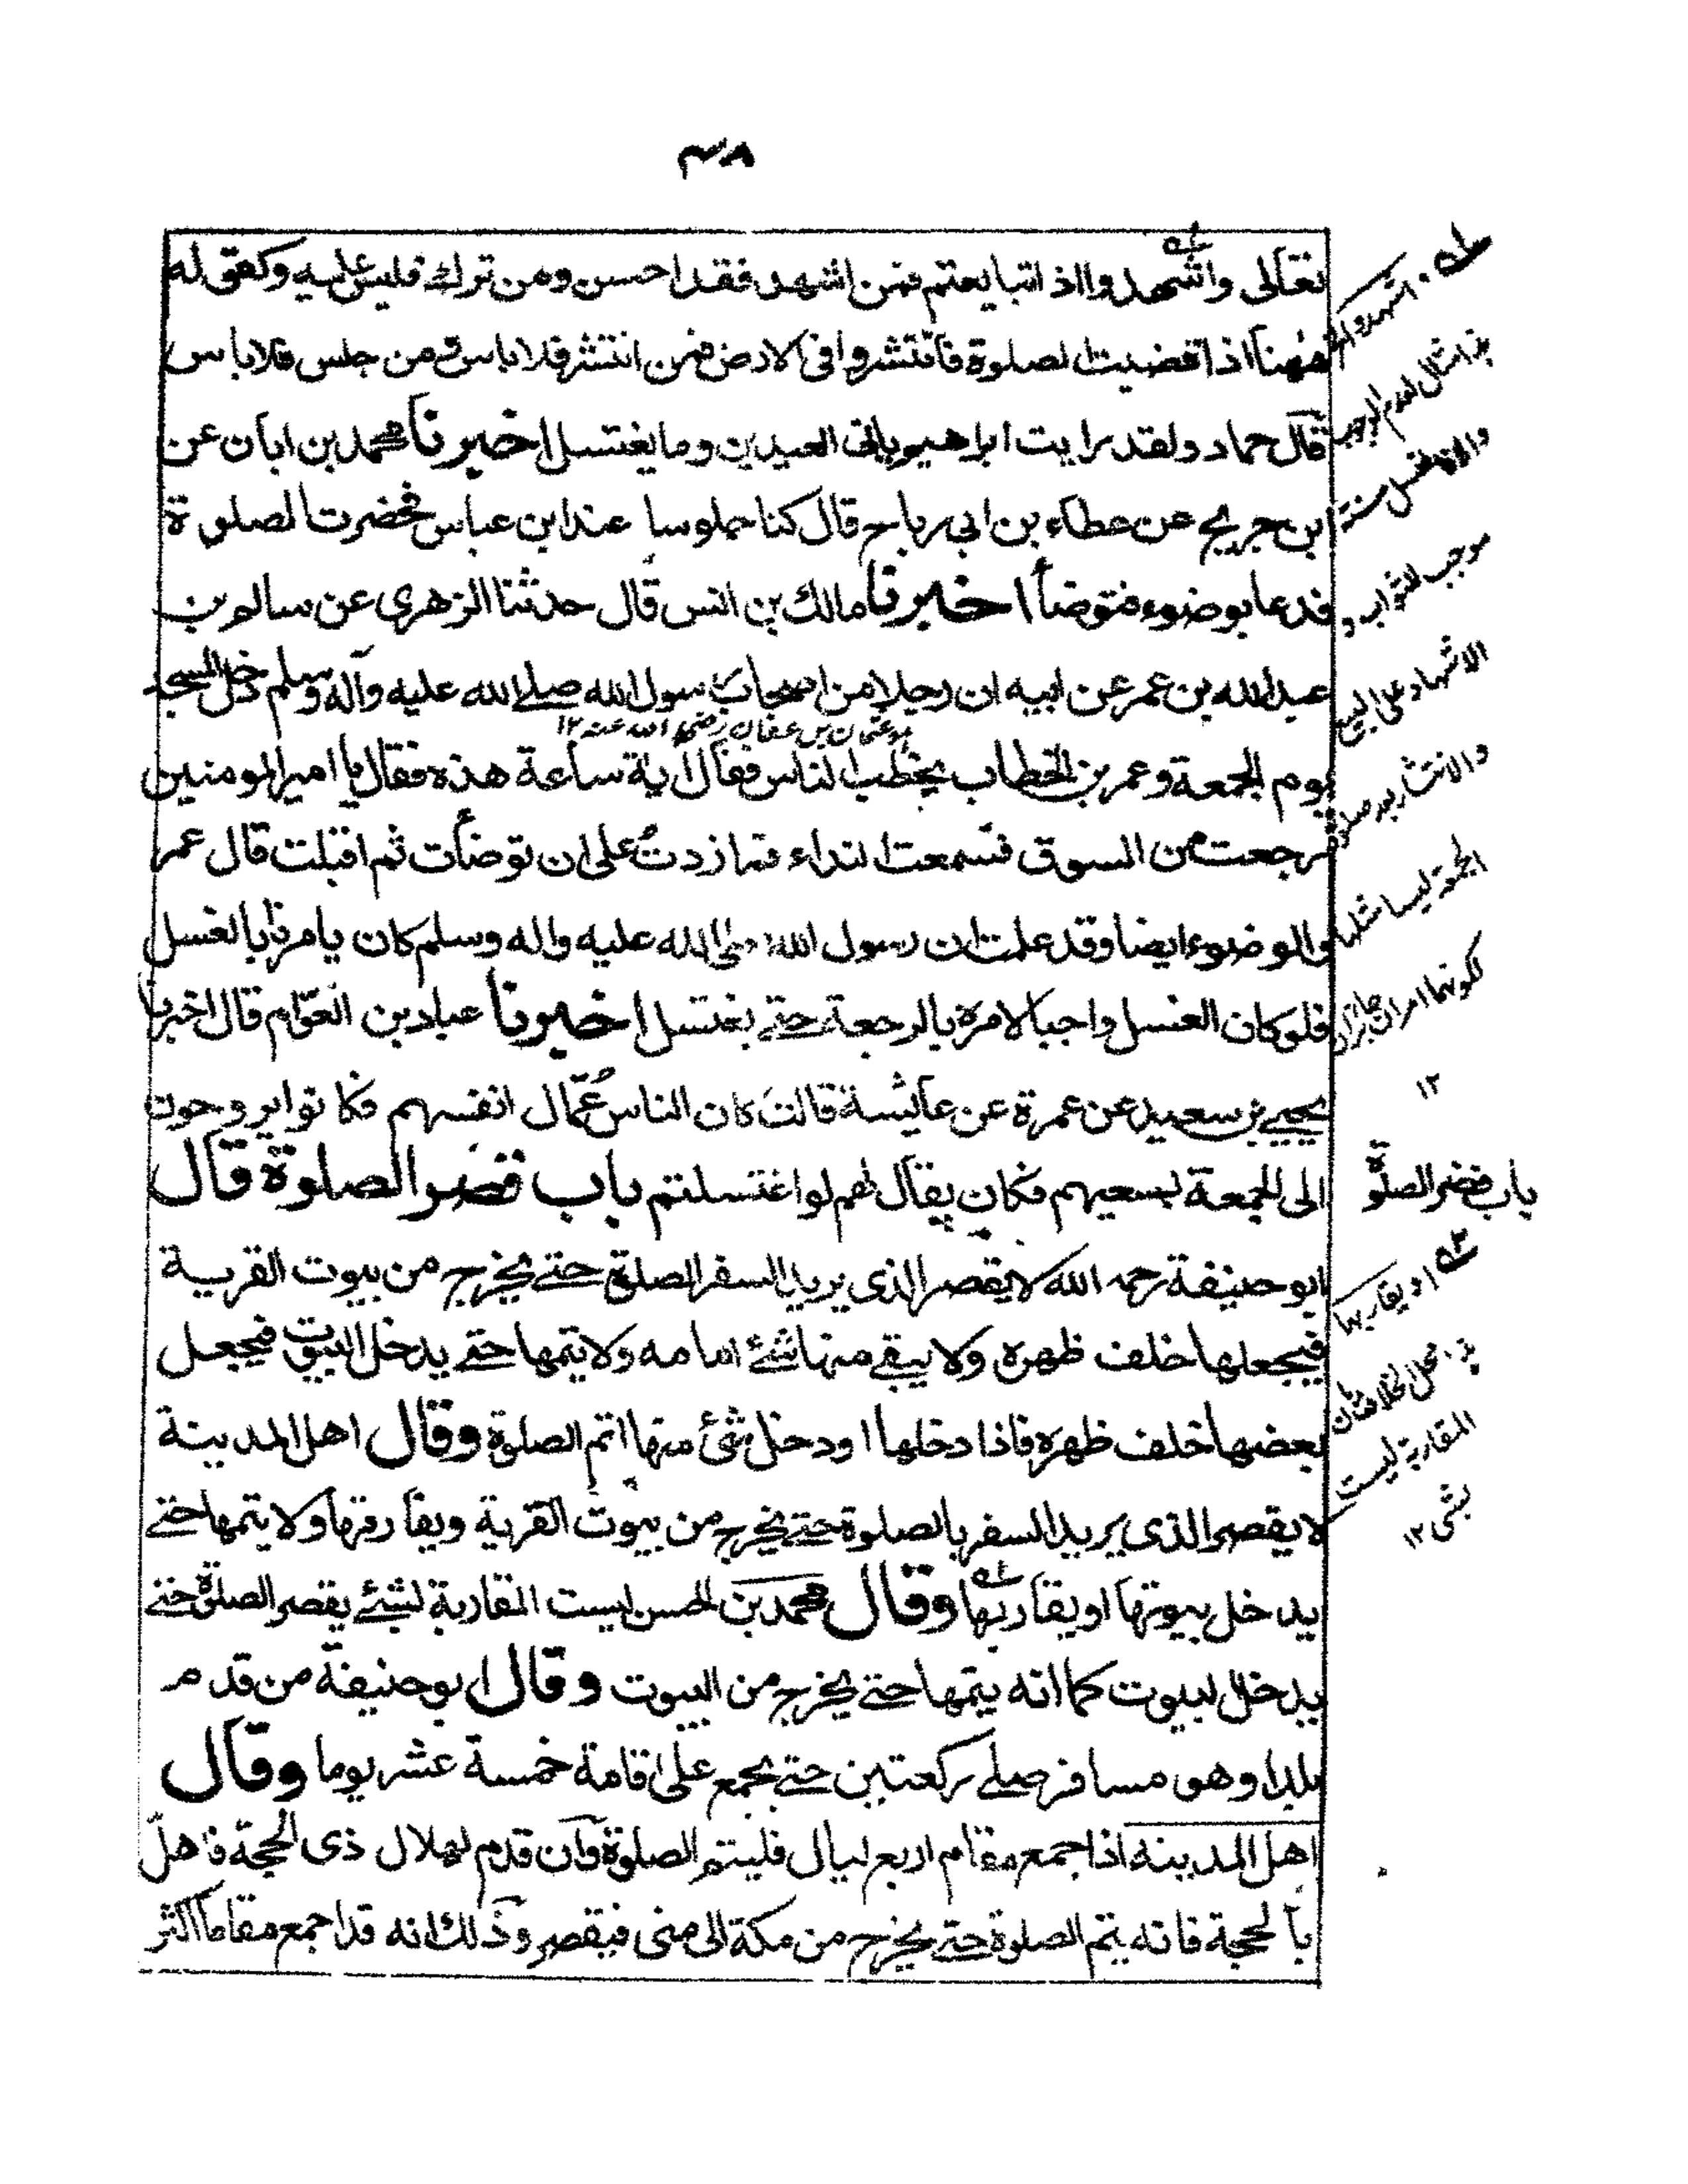 ٣٨
تعالى واشهدوا اذا تبايعتم فمن اشهد فقد احسن ومن ترك فليس عليه وكقوله
ههنا اذا قضيت الصلوة فانتشروا فى الارض فمن انتشر فلا باس ومن جلس فلا باس
قال حماد ولقد رايت ابراهيم ياتى العيدين وما يغتسل اخبرنا محمد بن ابان عن
ابن جريج عن عطاء بن ابى رباح قال كنا جلوسا عند ابن عباس فحضرت الصلوة
فدعا بوضوء فتوضأ اخبرنا مالك بن انس قال حدثنا الزهرى عن سالم بن
عبد الله بن عمر عن ابيه ان رجلا من اصحاب رسول الله صلى الله عليه وآله وسلم دخل المسجد
هو عثمان بن عفان رضى الله عنه ١٢
يوم الجمعة وعمر بن الخطاب يخطب الناس فقال اية ساعة هذه فقال يا امير المومنين
رجعت من السوق فسمعت النداء فما زدت على ان توضأت ثم اقبلت قال عمر
والوضوء ايضا وقد علمت ان رسول الله صلى الله عليه واله وسلم كان يامرنا بالغسل
فلو كان الغسل واجبا لامره بالرجعة حتى يغتسل اخبرنا عباد بن العوّام قال اخبرنا
يحيى بن سعيد عن عمرة عن عايشة قالت كان الناس عُمّال انفسهم فكانوا يروحون
الى الجمعة بسعيهم فكان يقال لهم لو اغتسلتم باب قصر الصلوة قال
ابو حنيفة رحمه الله لا يقصر الذى يريد السفر الصلوة حتى يخرج من بيوت القرية
فيجعلها خلف ظهره ولا يبقى منها شئ امامه ولا يتمها حتى يدخل البيوت فيجعل
بعضها خلف ظهره فاذا دخلها او دخل شئ منها اتم الصلوة وقال اهل المدينة
لا يقصر الذى يريد السفر بالصلوة حتى يخرج من بيوت القرية ويفارقها ولا يتمها حتى
يدخل بيوتها او يقاربها وقال محمد بن الحسن ليست المقاربة لشئ يقصر الصلوة حتى
يدخل البيوت كما انه يتمها حتى يخرج من البيوت وقال ابو حنيفة من قدم
بلدا وهو مسافر صلى ركعتين حتى يجمع على اقامة خمسة عشر يوما وقال
اهل المدينه اذا جمع مقام اربع ليال فليتم الصلوة وان قدم لهلال ذى الحجة فاهلّ
بالحجة فانه يتم الصلوة حتى يخرج من مكة الى منى فيقصر وذلك انه قد اجمع مقاما اكثر
موجب للثواب و
الاشهاد على البيع
والانتشار بعد صلوة
الجمعة ليسا مثلها
لكونهما امران جائزان
١٢
باب قصر الصلوة
او يقاربها
المقاربة ليست
بشئ ١٢